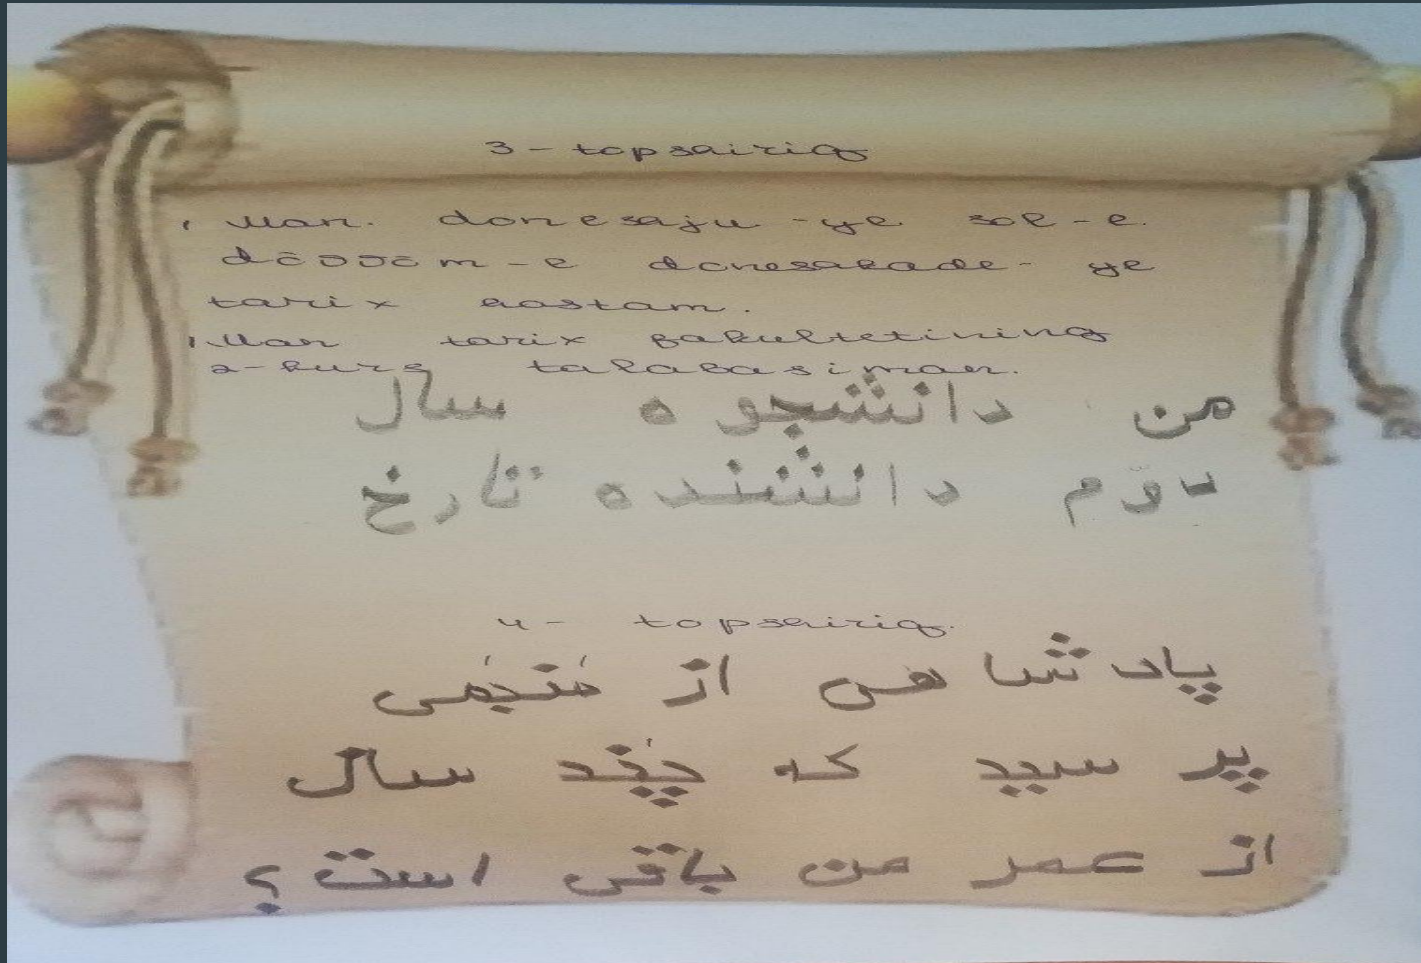 3 - topshiriq
1 Man. doneshju - ye sol - e.
dōvvōm - e doneshkade - ye
tarix hastam.
1 Man tarix fakultetining
2 - kurs talabasiman.
من دانشجو ه سال
دوّم دانشنده تارخ
4 - topshiriq.
پاد شا هی از مُنجمی
پر سید که چند سال
از عمر من باقی است؟